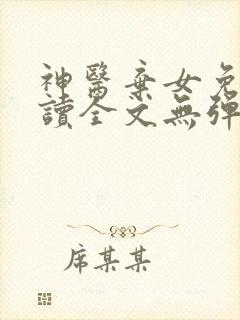 神醫棄女免
讀全文無彈
席某某